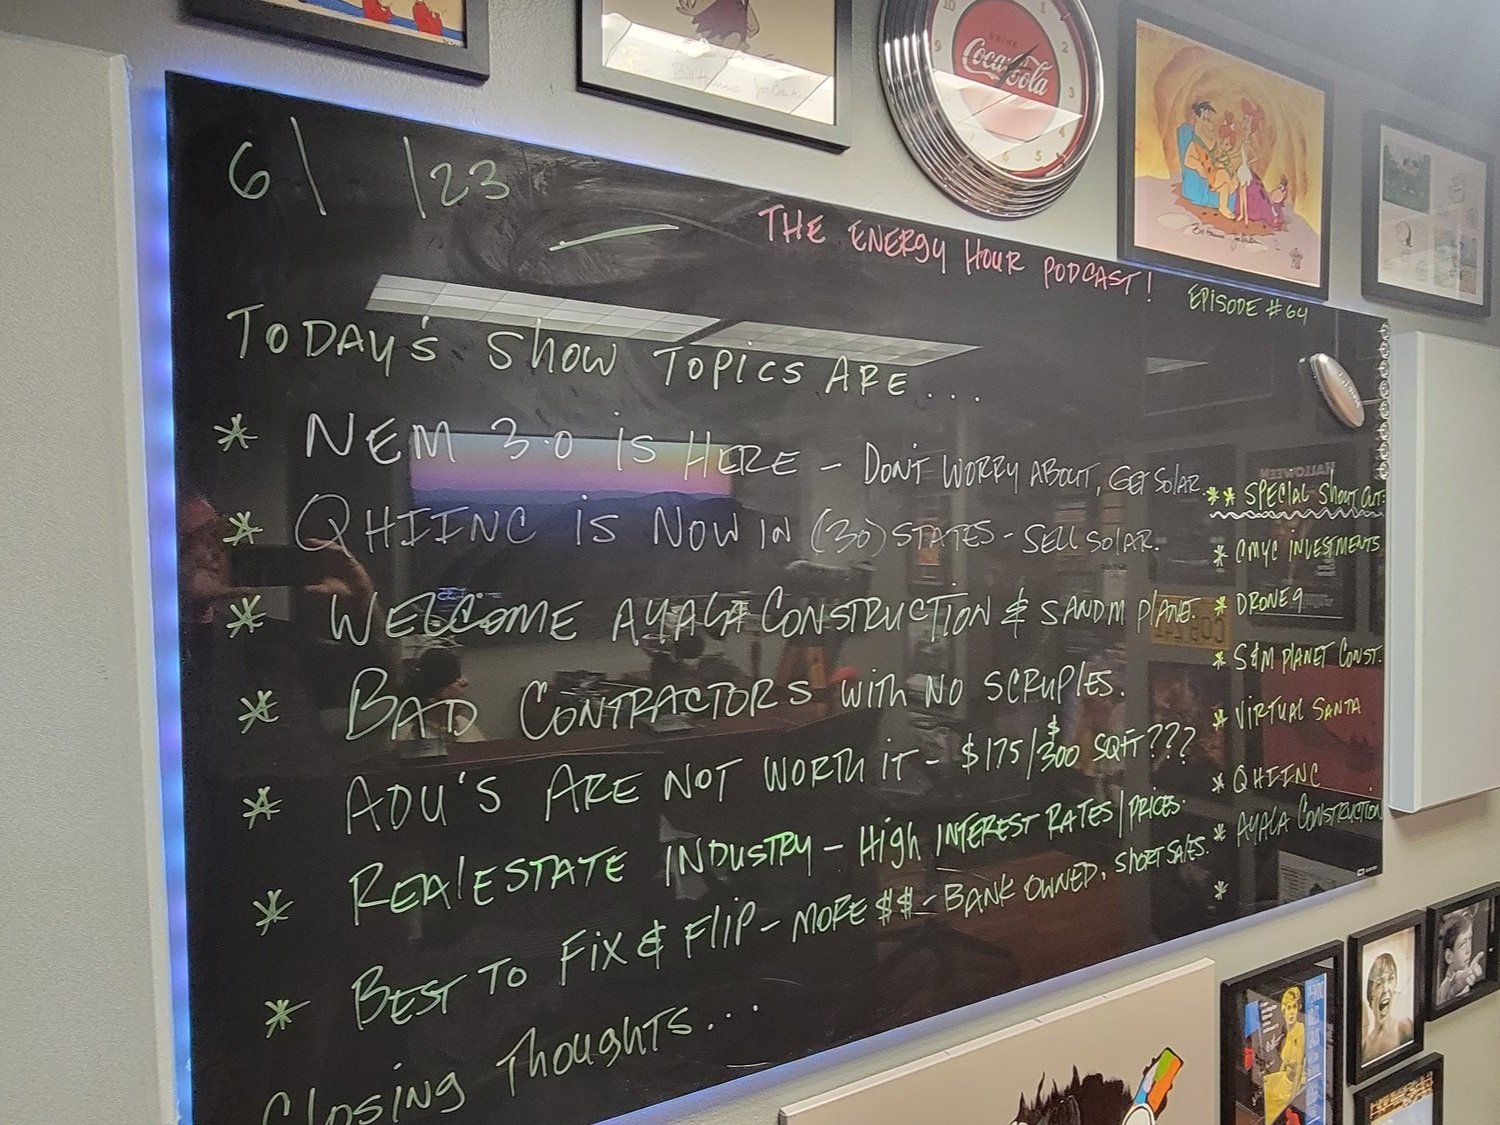 6/ /23
THE ENERGY HOUR PODCAST!
EPISODE #64
TODAY'S SHOW TOPICS ARE...
* NEM 3.0 IS HERE - DON'T WORRY ABOUT, GET SOLAR.
* QHIINC IS NOW IN (30) STATES - SELL SOLAR.
* WELCOME AYALA CONSTRUCTION & SANDM PLANET.
* BAD CONTRACTORS WITH NO SCRUPLES.
* ADU'S ARE NOT WORTH IT - $175/$300 SQFT???
* REALESTATE INDUSTRY - HIGH INTEREST RATES/PRICES.
* BEST TO FIX & FLIP - MORE $$ - BANK OWNED, SHORT SALES.
CLOSING THOUGHTS...
** SPECIAL SHOUT OUT:
* CMYC INVESTMENTS
* DRONE9
* S&M PLANET CONST.
* VIRTUAL SANTA
* QHIINC
* AYALA CONSTRUCTION
*
DRINK
Coca-Cola
10 1 2 3 4 5 6 9
HALLOWEEN